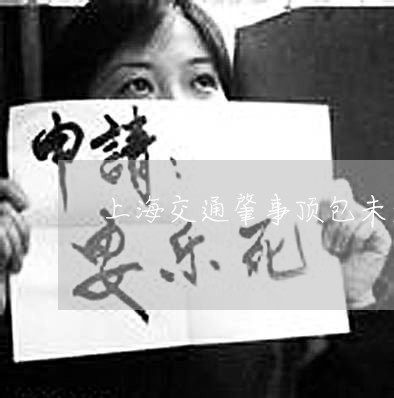 申請：
上海交通肇事顶包未
安乐死